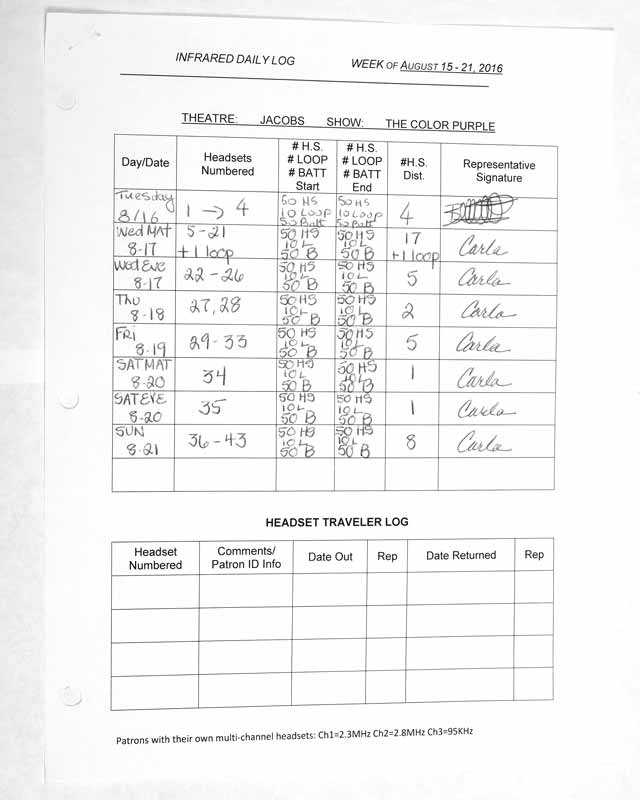 INFRARED DAILY LOG WEEK OF AUGUST 15 - 21, 2016
THEATRE: JACOBS SHOW: THE COLOR PURPLE
Day/Date
Headsets
Numbered
# H.S.
# LOOP
# BATT
Start
# H.S.
# LOOP
# BATT
End
#H.S.
Dist.
Representative
Signature
Tuesday
8/16
1 → 4
50 HS
10 LOOP
50 Batt
50 HS
10 LOOP
50 Batt
4
Wed MAT
8-17
5-21
+1 loop
50 HS
10 L
50 B
50 HS
10 L
50 B
17
+1 loop
Carla
Wed EVE
8-17
22-26
50 HS
10 L
50 B
50 HS
10 L
50 B
5
Carla
THU
8-18
27,28
50 HS
10 L
50 B
50 HS
10 L
50 B
2
Carla
FRI
8-19
29-33
50 HS
10 L
50 B
50 HS
10 L
50 B
5
Carla
SAT MAT
8-20
34
50 HS
10 L
50 B
50 HS
10 L
50 B
1
Carla
SAT EVE
8-20
35
50 HS
10 L
50 B
50 HS
10 L
50 B
1
Carla
SUN
8-21
36-43
50 HS
10 L
50 B
50 HS
10 L
50 B
8
Carla
HEADSET TRAVELER LOG
Headset
Numbered
Comments/
Patron ID Info
Date Out
Rep
Date Returned
Rep
Patrons with their own multi-channel headsets: Ch1=2.3MHz Ch2=2.8MHz Ch3=95KHz